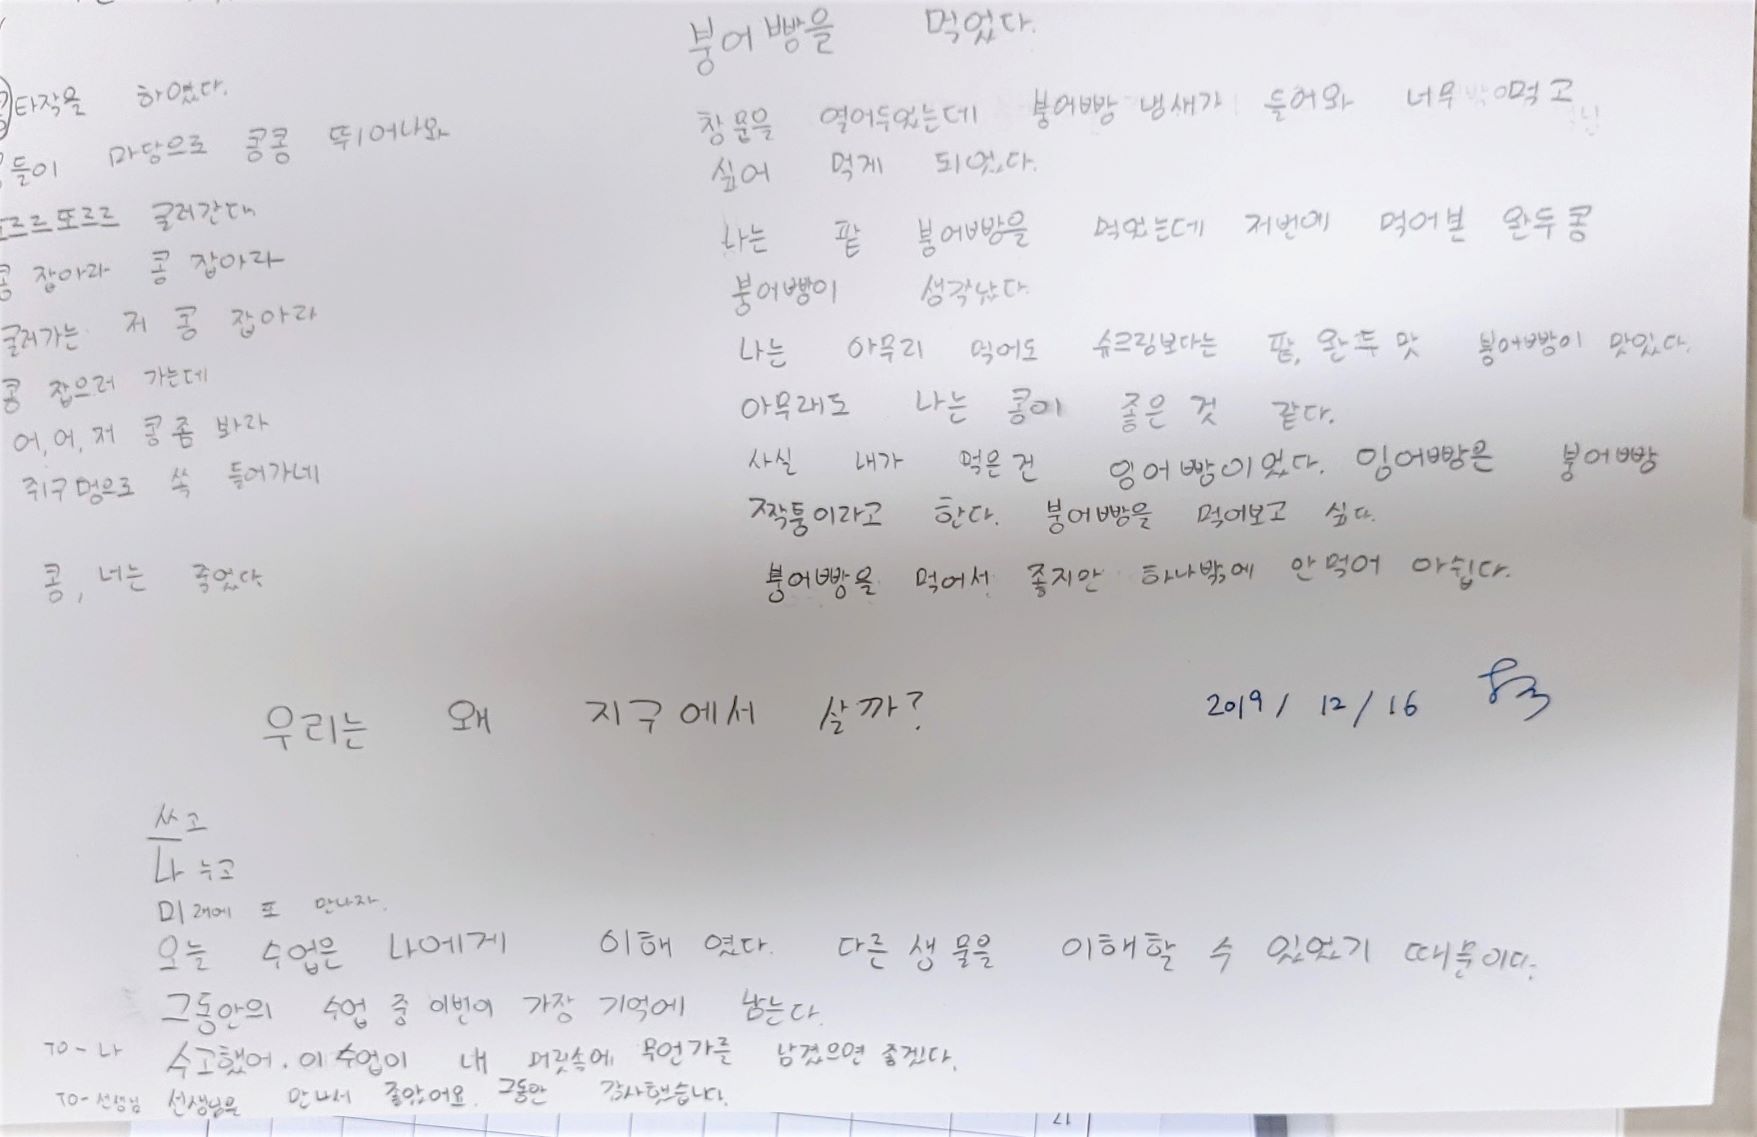 타작을 하였다.
들이 마당으로 콩콩 뛰어나와
또르르 굴러간다
콩 잡아라 콩 잡아라
굴러가는 저 콩 잡아라
콩 잡으러 가는데
어, 어, 저 콩 좀 봐라
쥐구멍으로 쏙 들어가네
콩, 너는 죽었다
붕어빵을 먹었다.
창문을 열어두었는데 붕어빵 냄새가 들어와 너무 먹고
싶어 먹게 되었다.
나는 팥 붕어빵을 먹었는데 저번에 먹어본 완두콩
붕어빵이 생각났다.
나는 아무리 먹어도 슈크림보다는 팥, 완두 맛 붕어빵이 맛있다.
아무래도 나는 콩이 좋은 것 같다.
사실 내가 먹은건 잉어빵이었다. 잉어빵은 붕어빵
짝퉁이라고 한다. 붕어빵을 먹어보고 싶다.
붕어빵을 먹어서 좋지만 하나밖에 안먹어 아쉽다.
우리는 왜 지구에서 살까? 2019/ 12/16
쓰고
나누고
미래에 또 만나자.
오늘 수업은 나에게 이해 였다. 다른 생물을 이해할 수 있었기 때문이다.
그동안의 수업 중 이번이 가장 기억에 남는다.
TO-나 수고했어. 이 수업이 내 머릿속에 무언가를 남겼으면 좋겠다.
TO-선생님 선생님을 만나서 좋았어요. 그동안 감사했습니다.
17